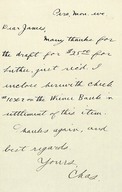 Dear James,
Many thanks for
the draft for $25.00 for
just rec'd. I
enclose herewith check
on the Bank in
settlement of this item.
Thanks again, and
best regards.
Yours,
Chas.